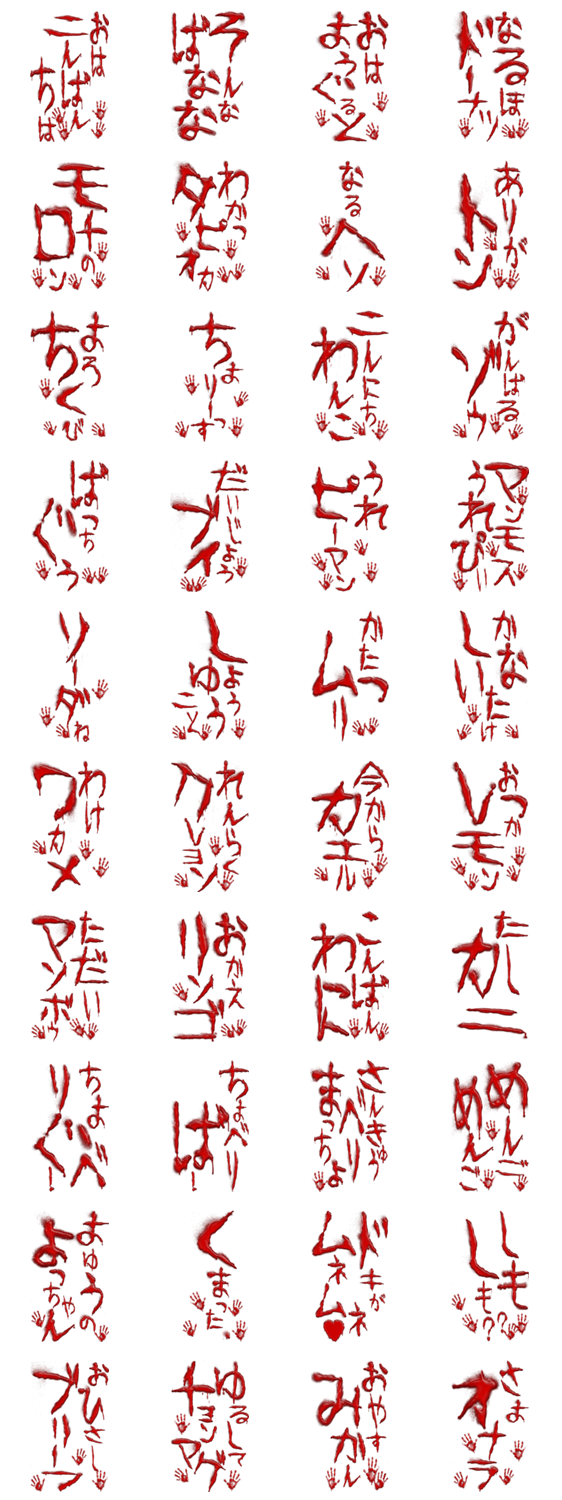 おは
こんばん
ちは
そんな
ばなな
おは
ようぐると
なるほ
ドーナツ
モナの
ロン
わかっ
タピオカ
なる
ヘソ
ありが
トン
よろ
ちくび
ちょ
りーっす
こんにち
わんこ
がんばる
ゾウ
ばっち
ぐぅ
だいじょう
ブイ
うれ
ピーマン
マンモス
うれぴー
ソーダね
しょう
ゆう
こと
かたつ
ムリ
かな
しい
たけ
わけ
ワカメ
れんらく
クレヨン
今から
カエル
おつか
レモン
ただい
マンボゥ
おかえ
リンゴ
こんばん
わに
たし
カニ
ちょべ
りぐー
ちょべり
ばー
さんきゅう
べりー
まっちょ
めんご
めんご
まゆうの
よっちゃん
くまった、
ドキがネ
ムネム♥
しも?
しも?
おひさし
ブリーフ
ゆるして
チョンマゲ
おやす
みかん
さよ
オナラ